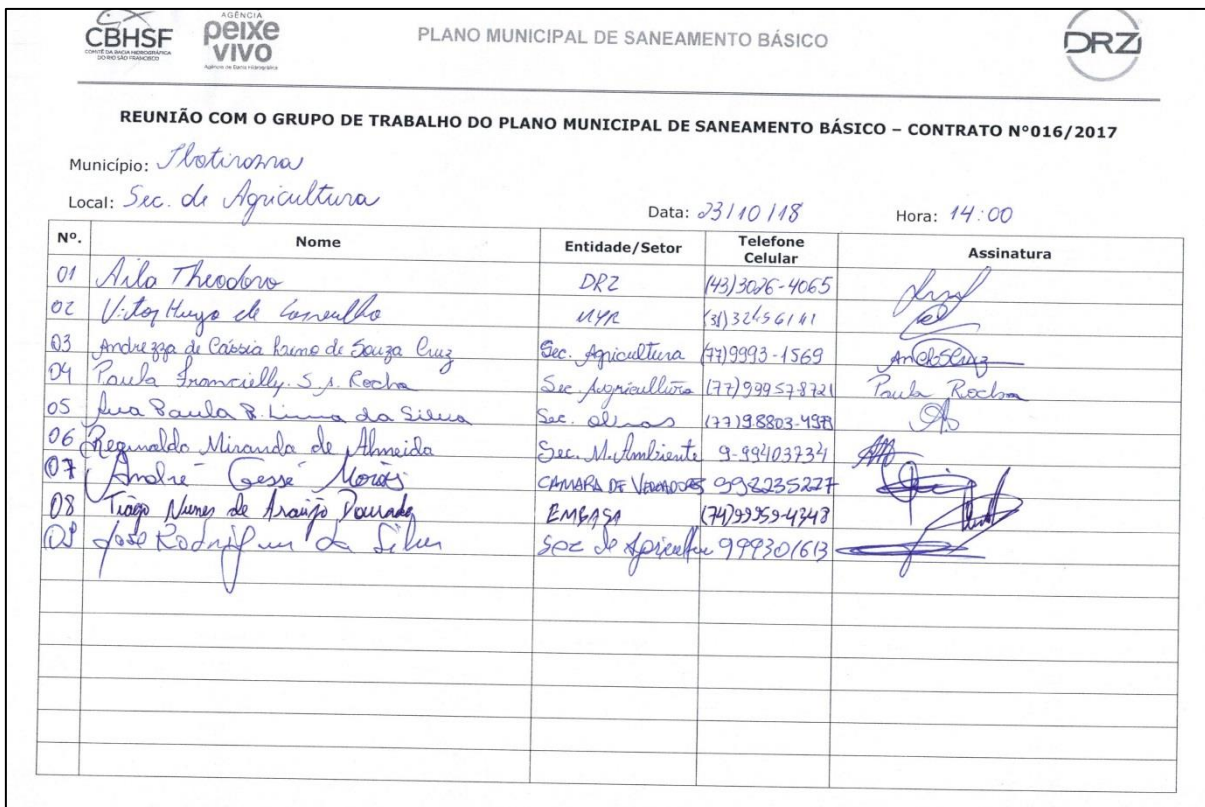 CBHSF
COMITÊ DA BACIA HIDROGRÁFICA
DO RIO SÃO FRANCISCO
AGÊNCIA
peixe
vivo
Agência de Bacia Hidrográfica
PLANO MUNICIPAL DE SANEAMENTO BÁSICO
DRZ
REUNIÃO COM O GRUPO DE TRABALHO DO PLANO MUNICIPAL DE SANEAMENTO BÁSICO – CONTRATO Nº016/2017
Município: Ibotirama
Local: Sec. de Agricultura Data: 23/10/18 Hora: 14:00
Nº. Nome Entidade/Setor Telefone Celular Assinatura
01 Aila Theodoro DRZ (43)3026-4065
02 Vitor Hugo de Carvalho MYR (31)32456141
03 Andrezza de Cássia de Souza Cruz Sec. Agricultura (77)9993-1569
04 Paula Francielly. S. S. Rocha Sec. Agricultura (77)999578721 Paula Rocha
05 Ana Paula B. Lima da Silva Sec. Obras (77)98803-
06 Reginaldo Miranda de Almeida Sec. M. Ambiente 9-99403734
07 André Gessé Morais CAMARA DE VEREADORES 998235227
08 Tiago Nunes de Araújo Dourado EMBASA (74)99959-4348
09 José Rodrigues da Silva Sec de Agricultura 999301613